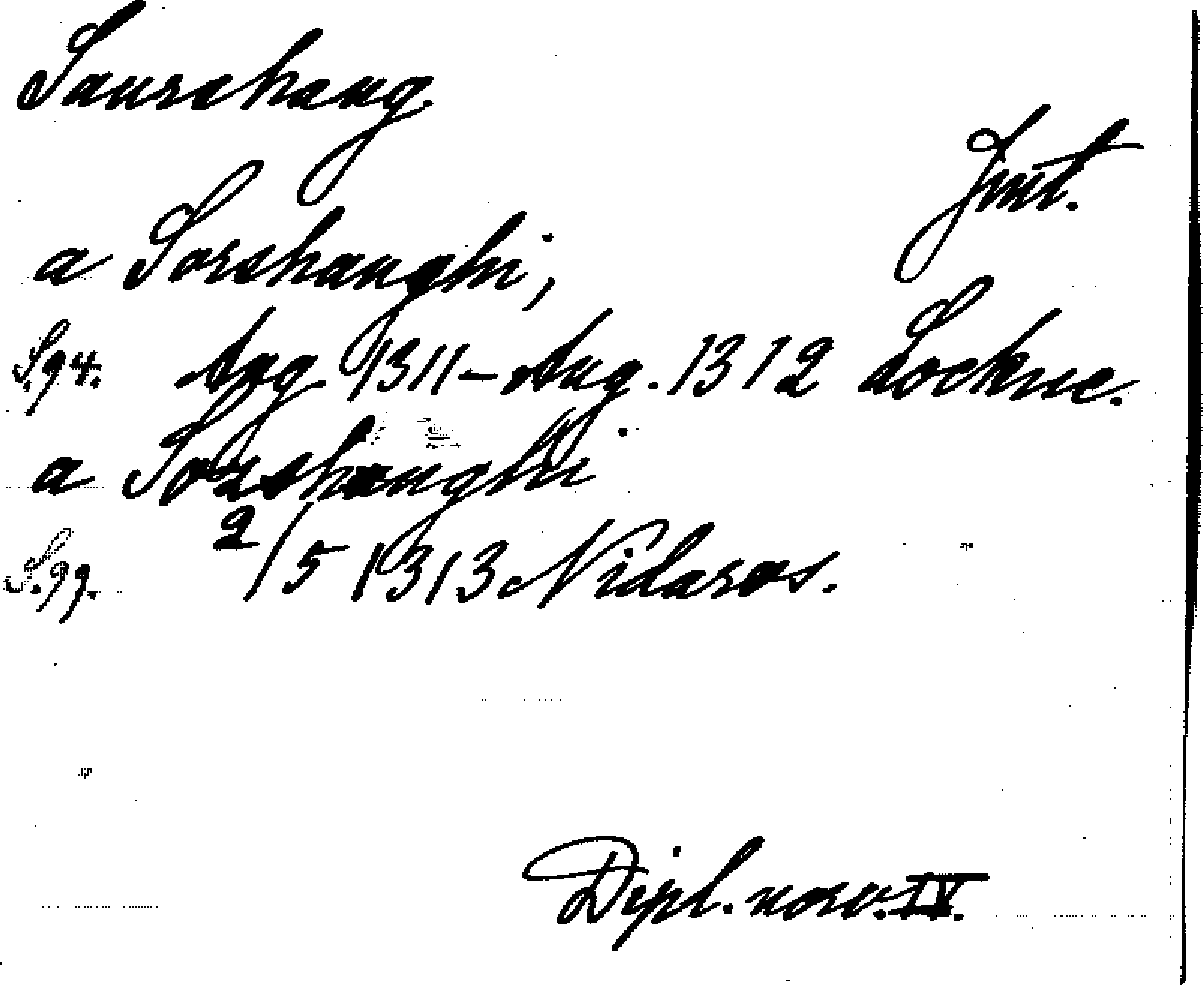 Saurshaug.
Jmt.
a Sorshaughi,
S. 94. Aug 1311-Aug. 1312 Lockne.
a Sorshaughi
S. 99. 2/5 1313 Nidaros.
Dipl. norv. IV.